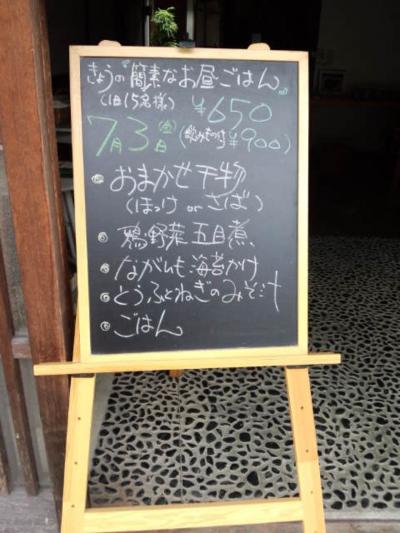 きょうの『簡素なお昼ごはん』
(1日15名様) ¥650
7月3日(金) (飲みもの付 ¥900)
◎ おまかせ干物
(ほっけ or さば)
◎ 鶏野菜五目煮、
◎ ながいも海苔かけ
◎ とうふとねぎのみそ汁
◎ ごはん